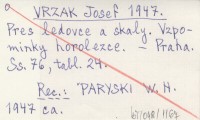 VRZAK Josef 1947.
Pres ledovce a skaly. Vzpo-
minky horolezce. - Praha.
Ss. 76, tabl. 24.
Rec.: PARYSKI W. H.
1947 ca.